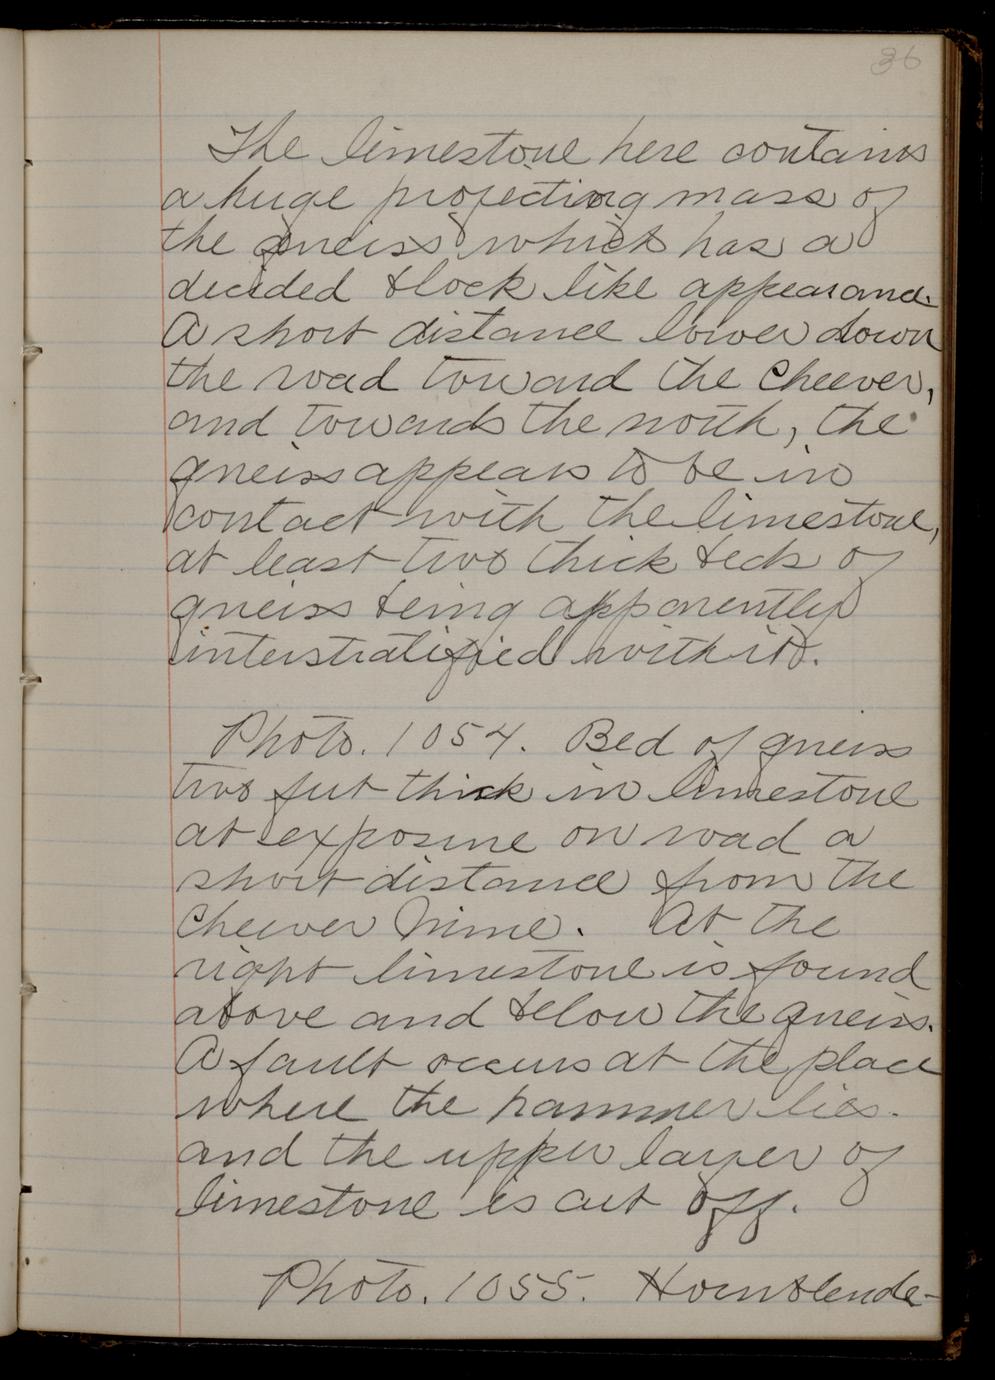 36
The limestone here contains
a huge projecting mass of
the gneiss which has a
decided block like appearance.
A short distance lower down
the road toward the Cheever,
and towards the north, the
gneiss appears to be in
contact with the limestone,
at least two thick beds of
gneiss being apparently
interstratified with it.
Photo. 1054. Bed of gneiss
two feet thick in limestone
at exposure on road a
short distance from the
Cheever Mine. At the
right limestone is found
above and below the gneiss.
A fault occurs at the place
where the hammer lies.
and the upper layer of
limestone is cut off.
Photo. 1055. Hornblende-